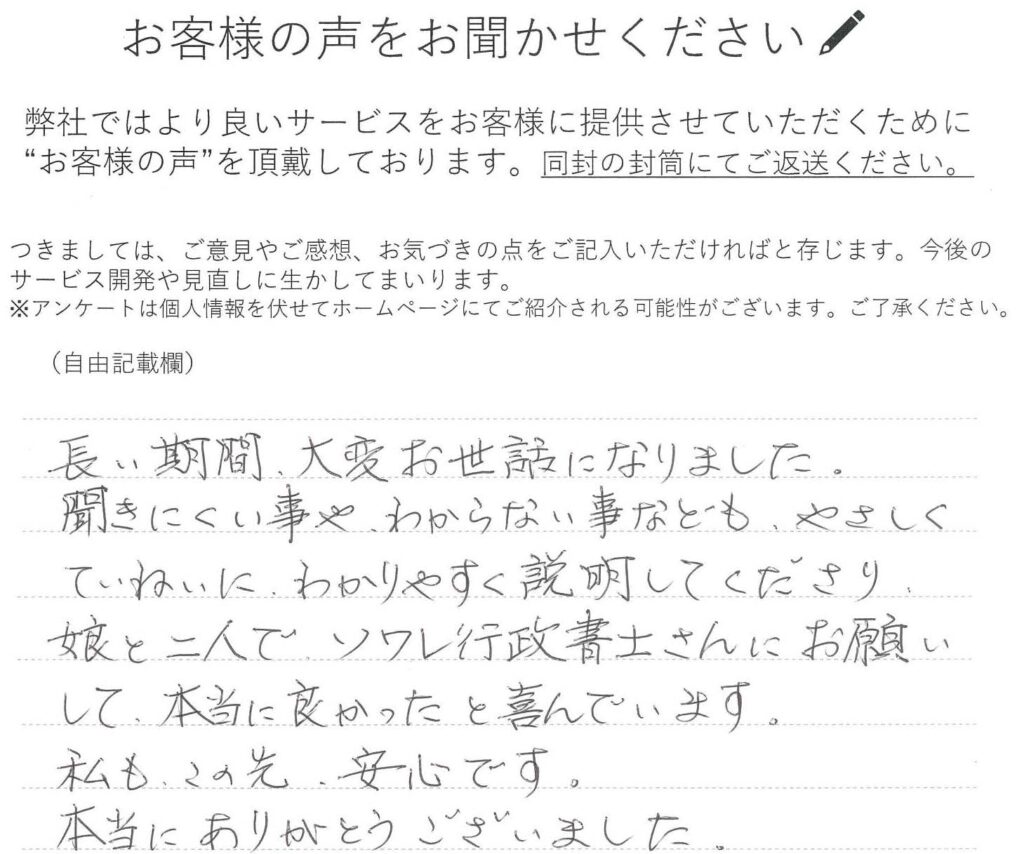 お客様の声をお聞かせください
弊社ではより良いサービスをお客様に提供させていただくために
“お客様の声”を頂戴しております。同封の封筒にてご返送ください。
つきましては、ご意見やご感想、お気づきの点をご記入いただければと存じます。今後の
サービス開発や見直しに生かしてまいります。
※アンケートは個人情報を伏せてホームページにてご紹介される可能性がございます。ご了承ください。
（自由記載欄）
長い期間、大変お世話になりました。
聞きにくい事や、わからない事なども、やさしく
ていねいに、わかりやすく説明してくださり、
娘と二人で、ソワレ行政書士さんにお願い
して、本当に良かったと喜んでいます。
私も、この先、安心です。
本当にありがとうございました。